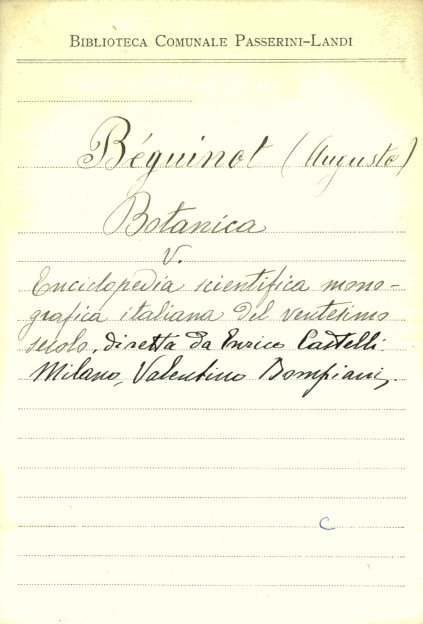 BIBLIOTECA COMUNALE PASSERINI-LANDI
Béguinot (Augusto)
Botanica
V.
Enciclopedia scientifica mono-
grafica italiana del ventesimo
secolo, diretta da Enrico Castelli.
Milano, Valentino Bompiani,.
C